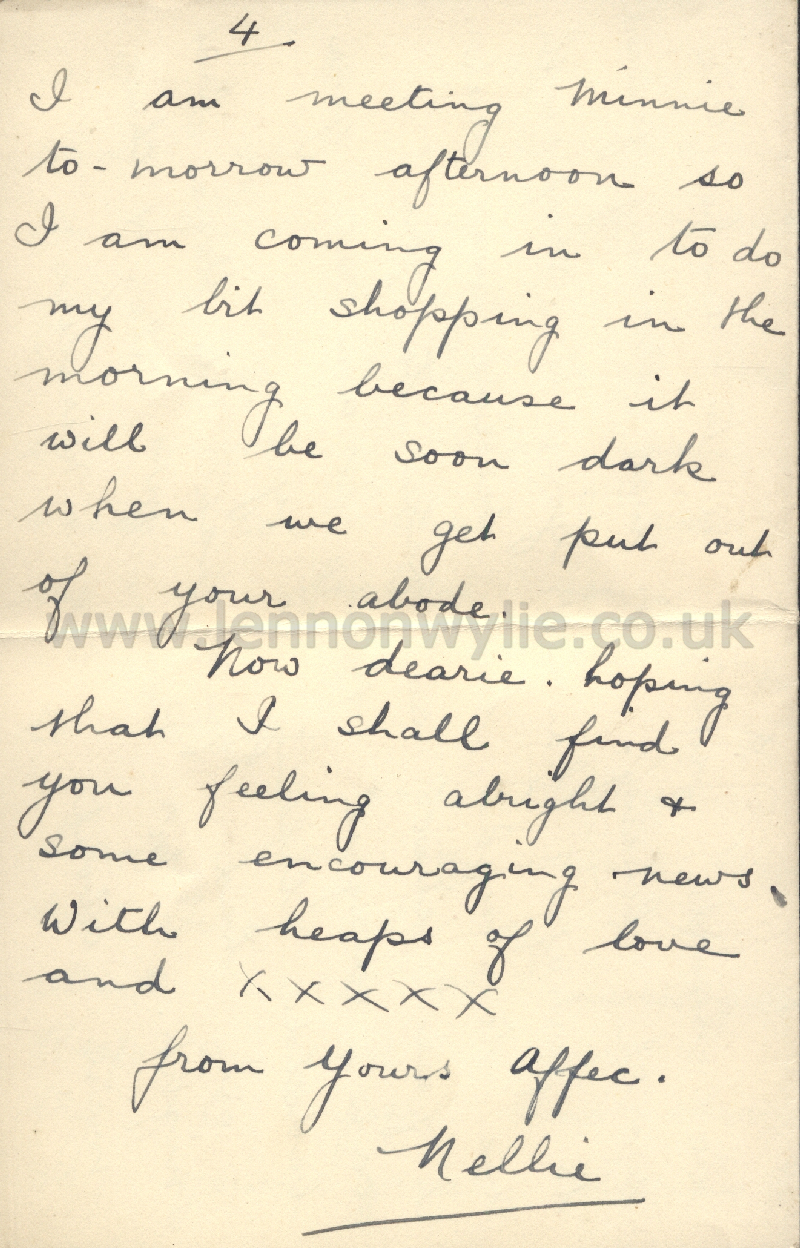 4
I am meeting Minnie
to-morrow afternoon so
I am coming in to do
my bit shopping in the
morning because it
will be soon dark
when we get put out
of your abode.
www.lennonwylie.co.uk
Now dearie. hoping
that I shall find
you feeling alright &
some encouraging news.
With heaps of love
and xxxxx
from Yours Affec.
Nellie